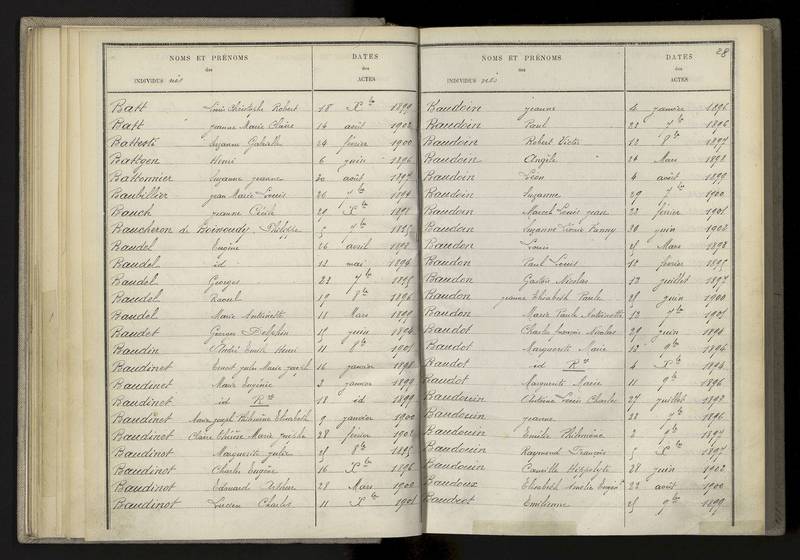 NOMS ET PRÉNOMS
des
INDIVIDUS nés
DATES
des
ACTES
Batt Louis Christophe Robert 18 Xbre 1899
Batt Jeanne Marie Claire 14 août 1902
Battesti Suzanne Gabrielle 24 février 1900
Battgen Henri 6 juin 1896
Battonnier Suzanne Jeanne 20 août 1897
Baubillier Jean Marie Louis 26 7bre 1894
Bauch Jeanne Cécile 29 Xbre 1898
Baucheron de Boissoudy Philippe 5 7bre 1895
Baudel Eugène 26 avril 1898
Baudel id 12 mai 1894
Baudel Georges 22 7bre 1895
Baudel Raoul 19 8bre 1896
Baudel Marie Antoinette 11 Mars 1899
Baudet Georges Delphin 15 juin 1894
Baudin André Emile Henri 11 8bre 1901
Baudinet Ernest Jules Marie Joseph 16 janvier 1898
Baudinet Marie Eugénie 3 janvier 1899
Baudinet id Ron 18 id 1899
Baudinet Marie Joseph Philomène Elisabeth 9 janvier 1900
Baudinot Claire Marie Josèphe 28 février 1902
Baudinot Marguerite Julie 25 8bre 1895
Baudinot Charles Eugène 16 Xbre 1896
Baudinot Edouard Arthur 28 Mars 1900
Baudinot Lucien Charles 11 Xbre 1901
28
NOMS ET PRÉNOMS
des
INDIVIDUS nés
DATES
des
ACTES
Baudoin Jeanne 4 janvier 1896
Baudoin Paul 22 7bre 1896
Baudoin Robert Victor 12 8bre 1897
Baudoin Angèle 24 Mars 1898
Baudoin Léon 4 août 1899
Baudoin Suzanne 29 7bre 1900
Baudoin Marcel Louis Jean 22 février 1901
Baudoin Suzanne Fanny 20 juin 1902
Baudon Louis 25 Mars 1898
Baudon Paul Louis 12 février 1895
Baudon Gaston Nicolas 12 juillet 1897
Baudon Jeanne Elisabeth Paule 25 juin 1900
Baudon Marie Paule Antoinette 12 7bre 1901
Baudot Charles François Nicolas 29 juin 1891
Baudot Marguerite Marie 12 9bre 1894
Baudot id Ron 4 Xbre 1894
Baudot Marguerite Marie 11 9bre 1896
Baudouin Antoine Louis Charles 27 juillet 1898
Baudouin Jeanne 28 7bre 1896
Baudouin Emilie Philomène 2 9bre 1897
Baudouin Raymond François 5 Xbre 1897
Baudouin Camille Hippolyte 28 juin 1902
Baudoux Elisabeth Amélie 22 août 1900
Baudrot Emilienne 25 9bre 1899